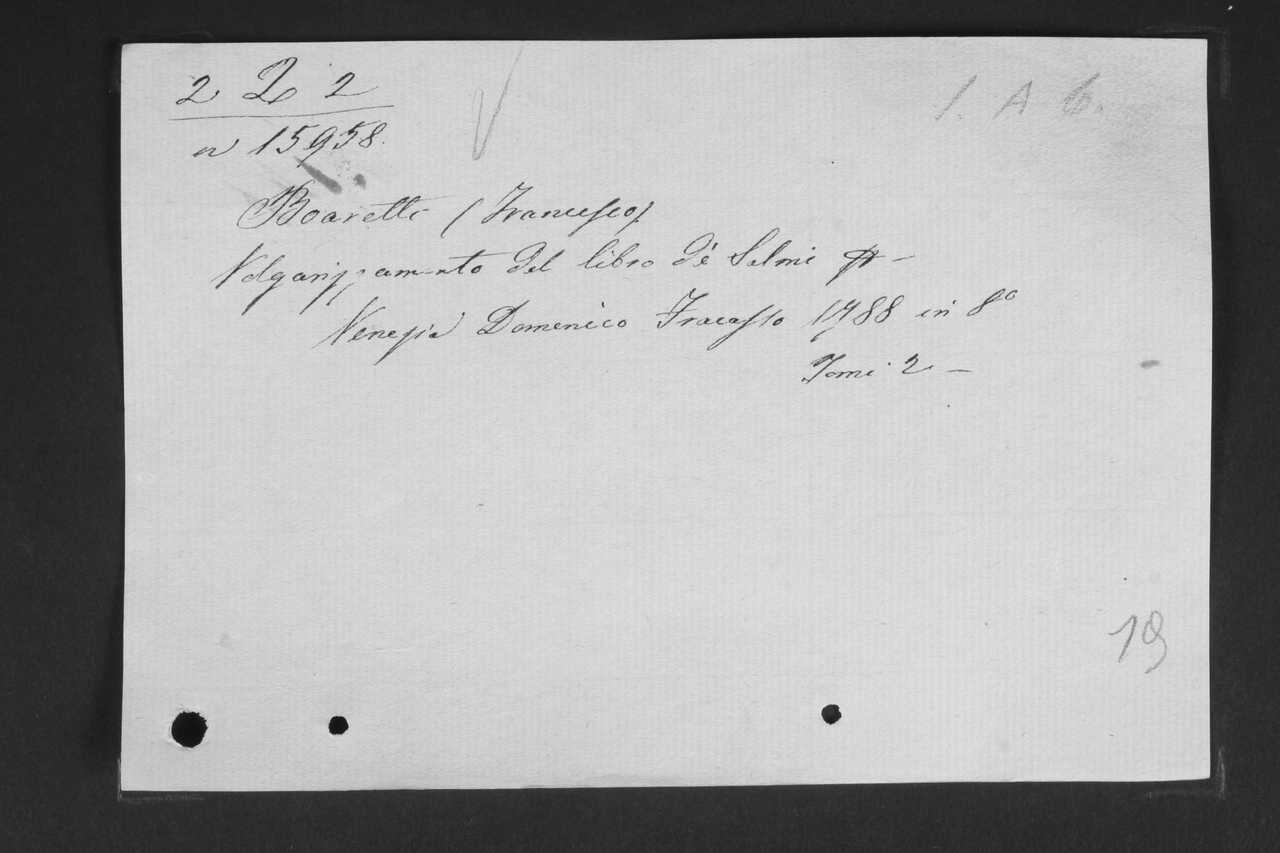 2 Q 2
1. A 6.
n 15958.
Boaretti (Francesco)
Volgarizzamento del libro de' Salmi
Venezia Domenico Fracasso 1788 in 8º
Tomi 2 –
19